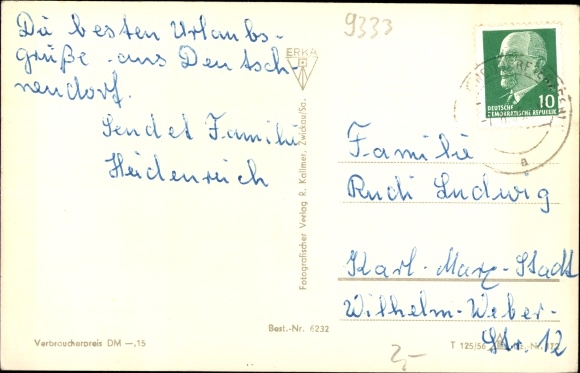 Die besten Urlaubs-
grüße aus Deutsch-
neudorf.
Sendet Familie
Heidenreich
9333
ERKA
DEUTSCHE
DEMOKRATISCHE REPUBLIK
10
Familie
Rudi Ludwig
Karl-Marx-Stadt
Wilhelm-Weber-
Str. 12
Fotografischer Verlag R. Kallmer, Zwickau/Sa.
Best.-Nr. 6232
Verbraucherpreis DM —,15
2,-
T 125/56
a